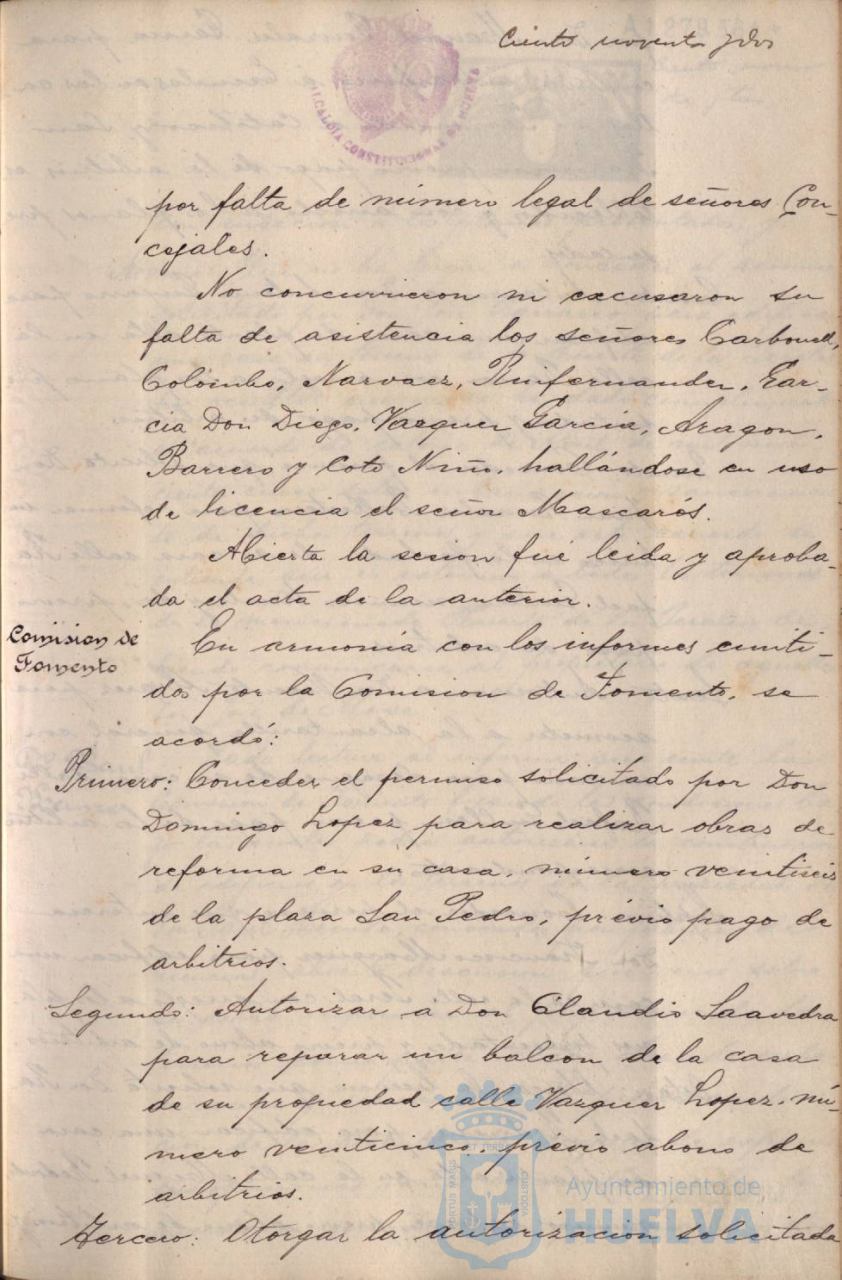 Ciento noventa y dos
ALCALDIA CONSTITUCIONAL DE
por falta de número legal de señores Con-
cejales.
No concurrieron ni excusaron su
falta de asistencia los señores Carbonell,
Colombo, Narvaez, Ruifernandez, Gar-
cia Don Diego, Vazquez Garcia, Aragon,
Barrero y Coto Niño, hallándose en uso
de licencia el señor Mascarós.
Abierta la sesion fué leida y aproba-
da el acta de la anterior.
Comision de
Fomento
En armonía con los informes emiti-
dos por la Comision de Fomento, se
acordó:
Primero: Conceder el permiso solicitado por Don
Domingo Lopez para realizar obras de
reforma en su casa, número veintiseis
de la plaza San Pedro, prévio pago de
arbitrios.
Segundo: Autorizar á Don Claudio Saavedra
para reparar un balcon de la casa
de su propiedad calle Vazquez Lopez, nú-
mero veinticinco, prévio abono de
arbitrios.
Tercero: Otorgar la autorizacion solicitada
PORTUS MARIS ET TERRAE CUSTODIA
Ayuntamiento de
HUELVA